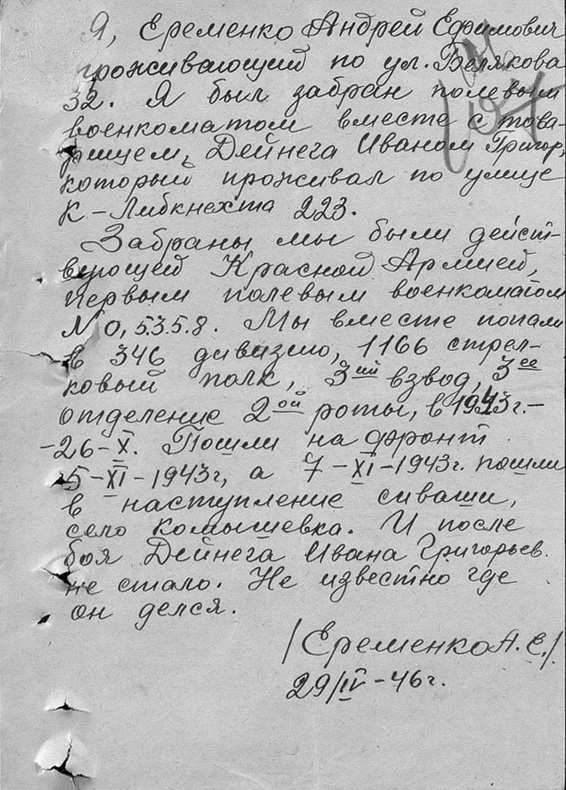 Я, Еременко Андрей Ефимович
проживающий по ул. Белякова
32. Я был забран полевым
военкоматом вместе с това-
рищем, Дейнега Иваном Григор,
который проживал по улице
К-Либкнехта 223.
Забраны мы были дейст-
вующей Красной Армией,
первым полевым военкоматом
№ 0,5358. Мы вместе попали
в 346 дивизию, 1166 стрел-
ковый полк, 3ий взвод, 3ее
отделение 2ой роты, в 1943г.-
-26-X. Пошли на фронт
5-XI-1943г, а 7-XI-1943г. пошли
в наступление сиваши,
село комышевка. И после
боя Дейнега Ивана Григорьев.
не стало. Не известно где
он делся.
/Еременко А. Е./
29/IV-46г.